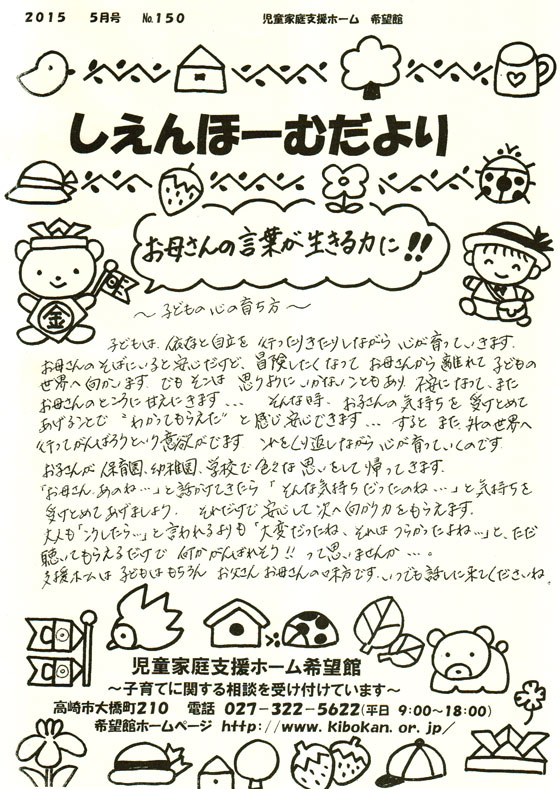 2015 5月号 No.150 児童家庭支援ホーム 希望館
しえんほーむだより
お母さんの言葉が生きる力に!!
～子どもの心の育ち方～
金
子どもは、依存と自立を行ったりきたりしながら心が育っていきます。
お母さんのそばにいると安心だけど、冒険したくなってお母さんから離れて子どもの
世界へ向かいます。でもそこは思うようにいかないこともあり、不安になって、また
お母さんのところに甘えにきます… そんな時、お子さんの気持ちを受けとめて
あげることで "わかってもらえた"と感じ安心できます… するとまた外の世界へ
行ってがんばろうという意欲がでます それをくり返しながら心が育っていくのです。
お子さんが保育園、幼稚園、学校で色々な思いをして帰ってきます。
「お母さんあのね…」と話かけてきたら「そんな気持ちだったのね…」と気持ちを
受けとめてあげましょう。それだけで安心して次へ向かう力をもらえます。
大人も「こうしたら…」と言われるよりも「大変だったね、それはつらかったよね…」と、ただ
聴いてもらえるだけで何かがんばれそう!!って思いませんか…。
支援ホームは子どもはもちろん お父さんお母さんの味方です。いつでも話しに来てくださいね。
児童家庭支援ホーム希望館
～子育てに関する相談を受け付けています～
高崎市大橋町210 電話 027-322-5622(平日 9:00～18:00)
希望館ホームページ http://www.kibokan.or.jp/